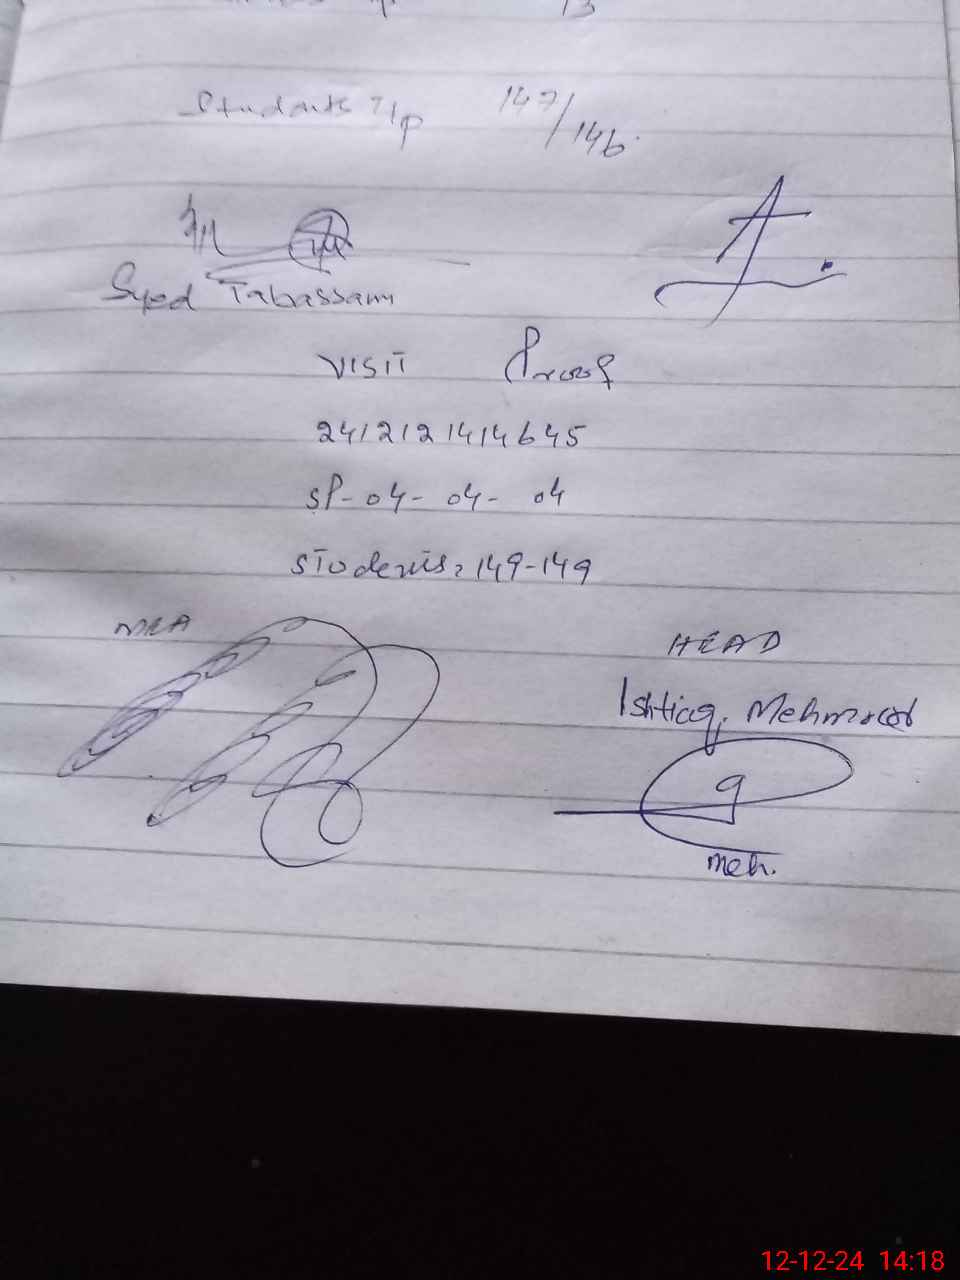 13
Students T/p 147/146
Syed Tabassam
VISIT Proof
241212141464 5
SP-04-04-04
Students: 149-149
MEA
HEAD
Ishtiaq Mehmood
Meh.
12-12-24 14:18